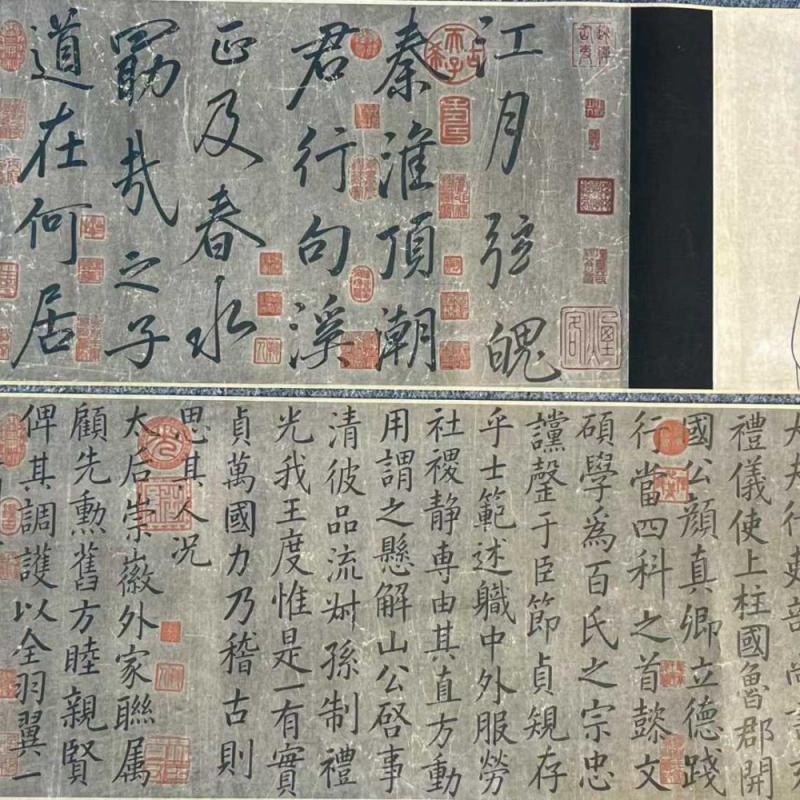 江月弦魄
秦淮頂潮
君行句溪
正及春水
勖哉之子
道在何居
夫行吏部尚書充
禮儀使上柱國魯郡開
國公顏真卿立德踐
行當四科之首懿文
碩學為百氏之宗忠
讜罄于臣節貞規存
乎士範述職中外服勞
社稷静専由其直方動
用謂之懸解山公啓事
清彼品流叔孫制禮
光我王度惟是一有實
貞萬國力乃稽古則
思其人况
太后崇徽外家聯属
顧先勲舊方睦親賢
俾其調護以全羽翼一